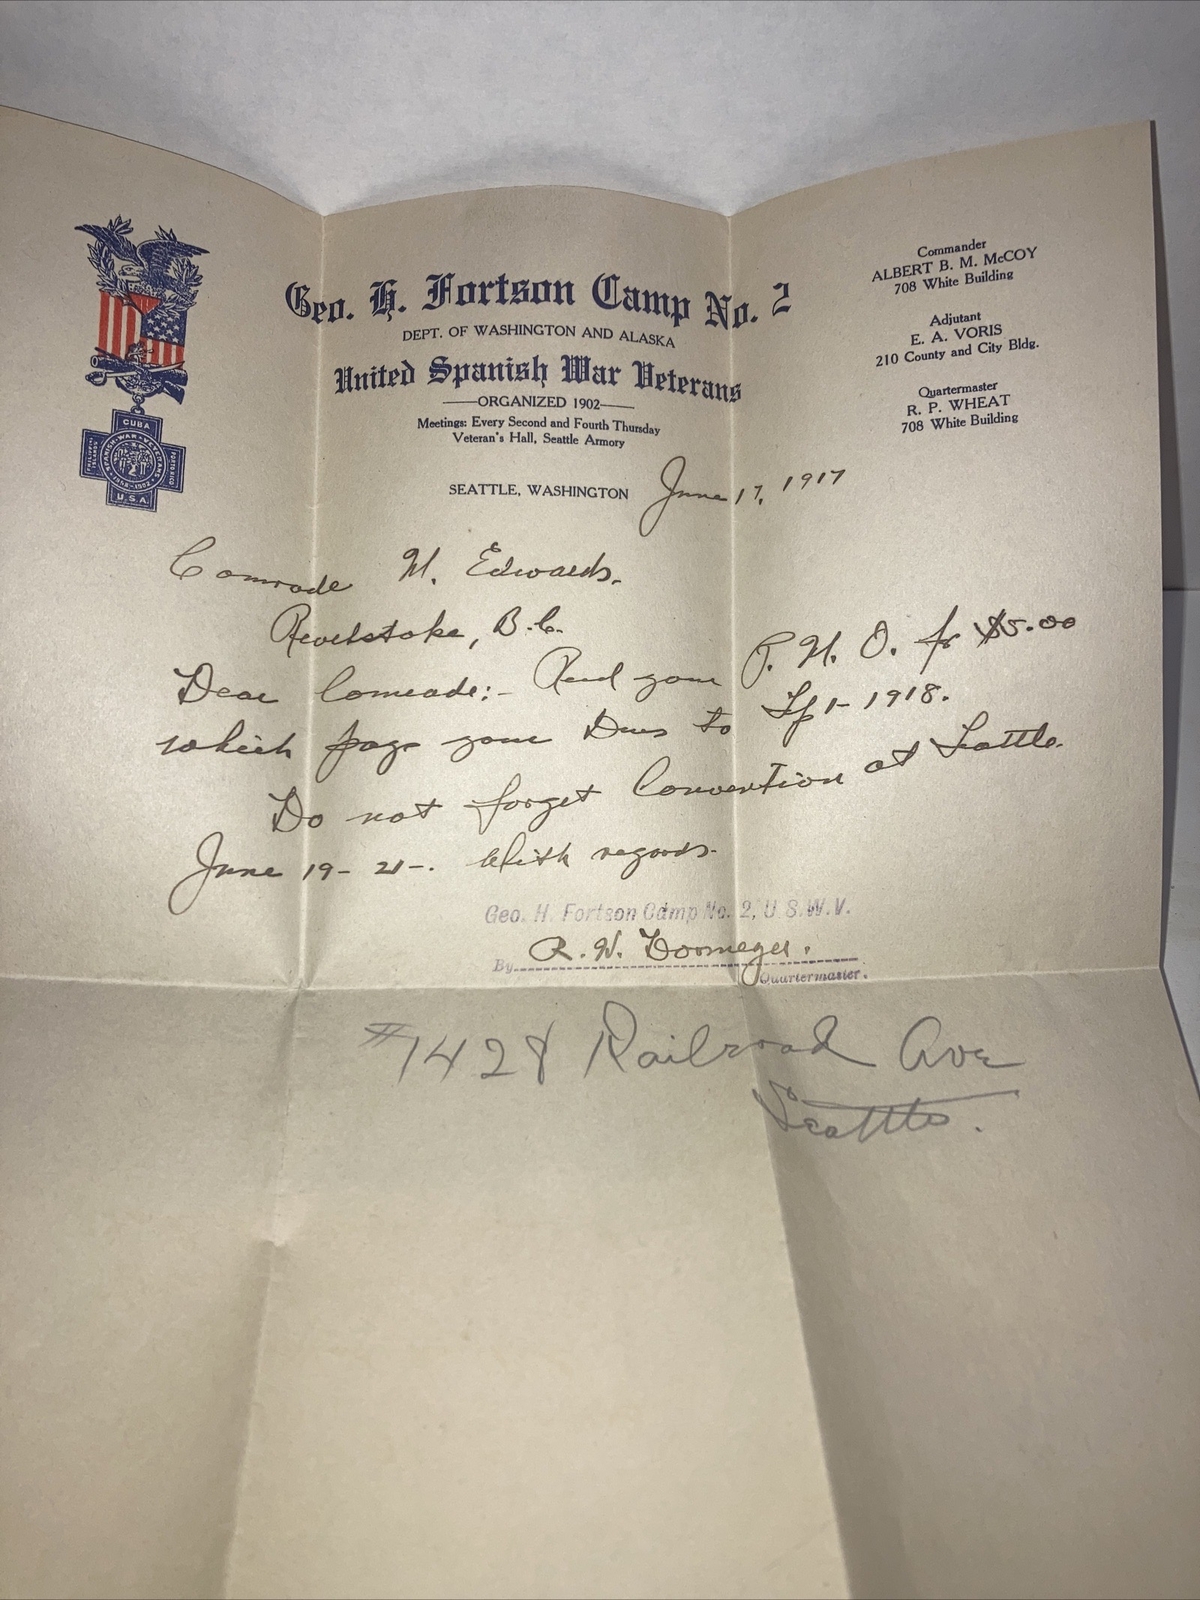 Geo. H. Fortson Camp No. 2
DEPT. OF WASHINGTON AND ALASKA
United Spanish War Veterans
ORGANIZED 1902
Meetings: Every Second and Fourth Thursday
Veteran's Hall, Seattle Armory
Commander
ALBERT B. M. McCOY
708 White Building
Adjutant
E. A. VORIS
210 County and City Bldg.
Quartermaster
R. P. WHEAT
708 White Building
CUBA
PHILIPPINE ISLANDS
SPANISH WAR VETERANS
1898-1902
PORTO RICO
U.S.A.
SEATTLE, WASHINGTON June 17, 1917
Comrade M. Edwards.
Revelstoke, B.C.
Dear Comrade:- Recd your P. M. O. for $5.00
which pays your Dues to 1918.
Do not forget Convention at Seattle.
June 19- 21-. With regards.
Geo. H. Fortson Camp No. 2, U.S.W.V.
By R. W.
Quartermaster.
#1428 Railroad Ave
Seattle.